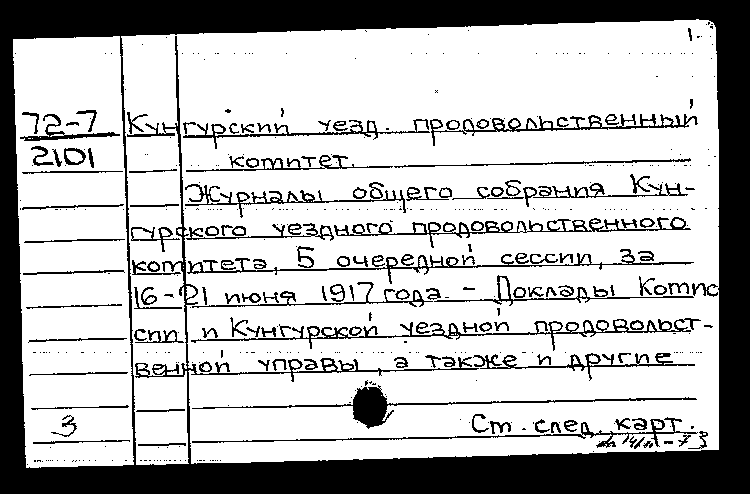 1.
72-7 Кунгурский уезд. продовольственный
2101 комитет.
Журналы общего собрания Кун-
гурского уездного продовольственного
комитета, 5 очередной сессии, за
16-21 июня 1917 года. - Доклады Комис
сии и Кунгурской уездной продовольст-
венной управы, а также и другие
3 Ст. след. карт.